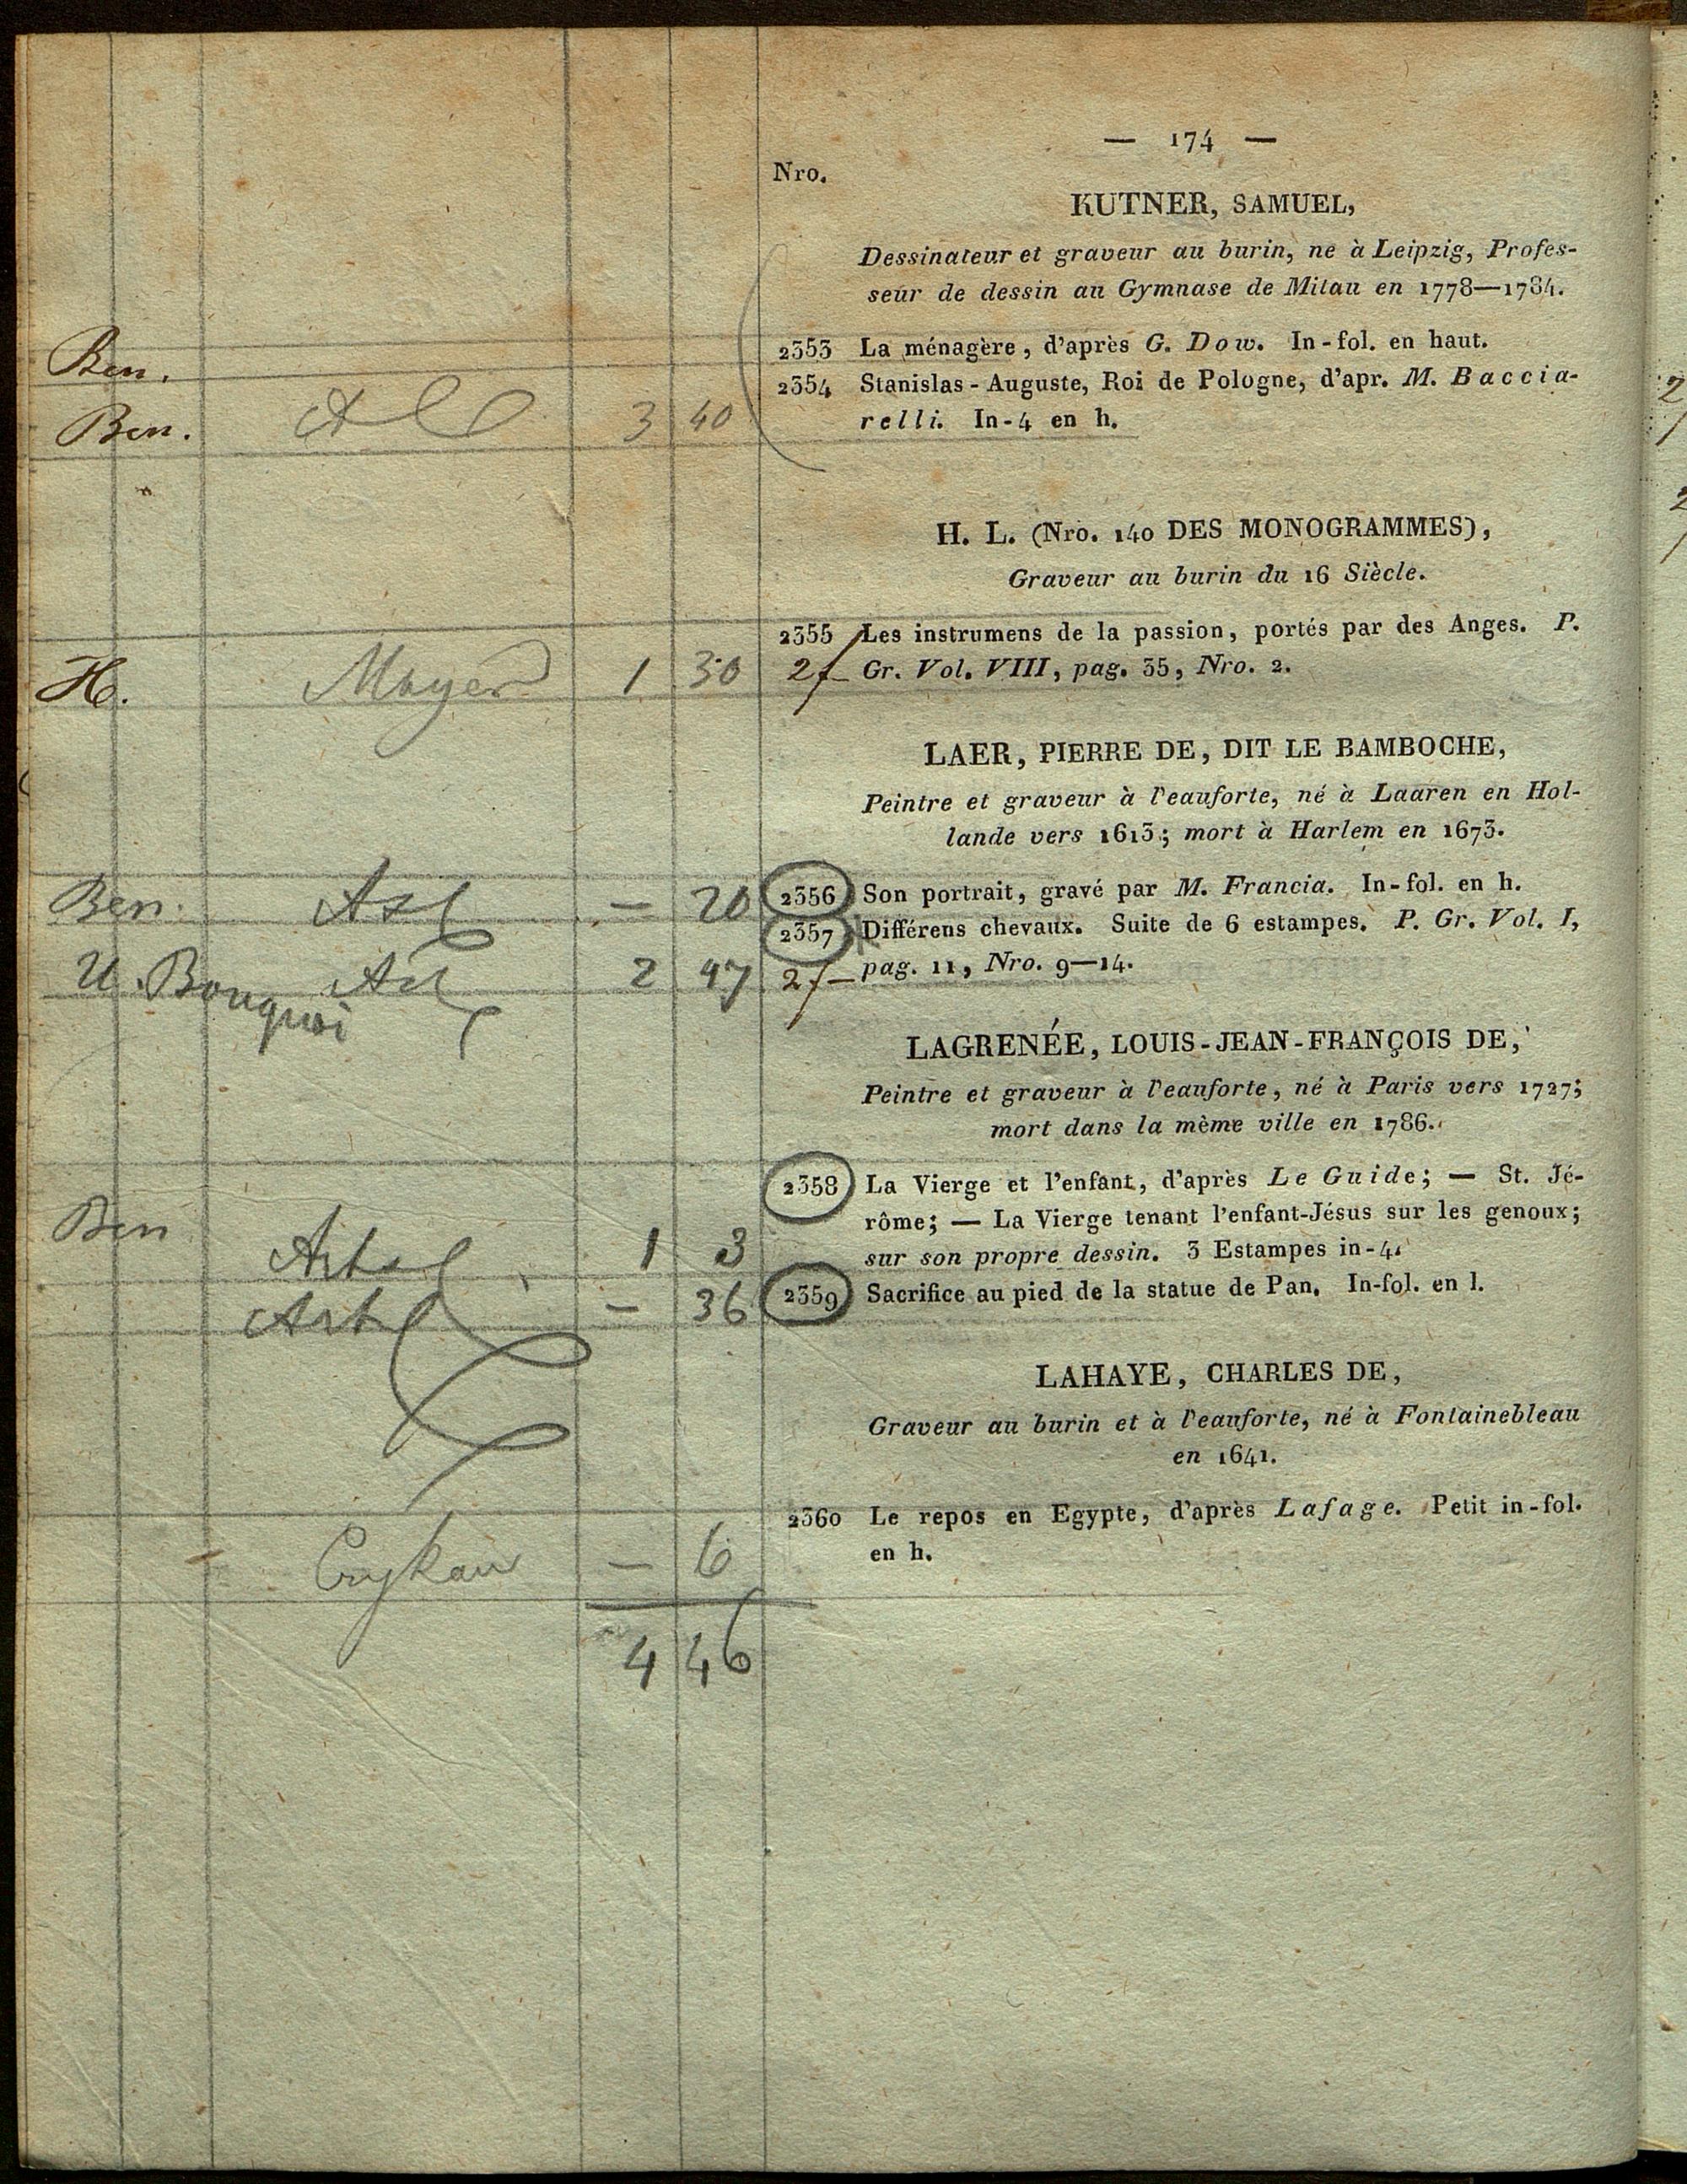 — 174 —
Nro.
KUTNER, SAMUEL,
Dessinateur et graveur au burin, ne à Leipzig, Profes-
seur de dessin au Gymnase de Mitau en 1778—1784.
Ben.
2353 La ménagère, d'après G. Dow. In-fol. en haut.
2354 Stanislas-Auguste, Roi de Pologne, d'apr. M. Baccia-
Ben. 3 40 relli. In-4 en h.
H. L. (Nro. 140 DES MONOGRAMMES),
Graveur au burin du 16 Siècle.
2355 Les instrumens de la passion, portés par des Anges. P.
H. Mayer 1 30 2f— Gr. Vol. VIII, pag. 35, Nro. 2.
LAER, PIERRE DE, DIT LE BAMBOCHE,
Peintre et graveur à l'eauforte, né à Laaren en Hol-
lande vers 1613; mort à Harlem en 1673.
Ben. — 20 2356 Son portrait, gravé par M. Francia. In-fol. en h.
2357 Différens chevaux. Suite de 6 estampes. P. Gr. Vol. I,
U. Bouquoi 2 47 2f— pag. 11, Nro. 9—14.
LAGRENÉE, LOUIS-JEAN-FRANÇOIS DE,
Peintre et graveur à l'eauforte, né à Paris vers 1727;
mort dans la mème ville en 1786.
2358 La Vierge et l'enfant, d'après Le Guide; — St. Jé-
Ben rôme; — La Vierge tenant l'enfant-Jésus sur les genoux;
Art 1 3 sur son propre dessin. 3 Estampes in-4.
Art — 36 2359 Sacrifice au pied de la statue de Pan. In-fol. en l.
LAHAYE, CHARLES DE,
Graveur au burin et à l'eauforte, né à Fontainebleau
en 1641.
2360 Le repos en Egypte, d'après Lafage. Petit in-fol.
— 6 en h.
4 46